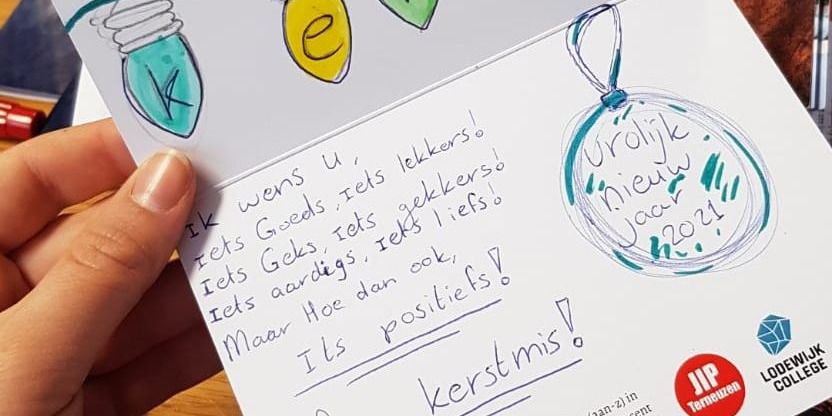 k
e
Ik wens u,
Iets Goeds, Iets lekkers!
Iets Geks, Iets gekkers!
Iets aardigs, Iets liefs!
Maar Hoe dan ook,
Its positiefs!
kerstmis!
Vrolijk
nieuw
jaar
2021
(aan-z) in
JIP
Terneuzen
LODEWIJK
COLLEGE